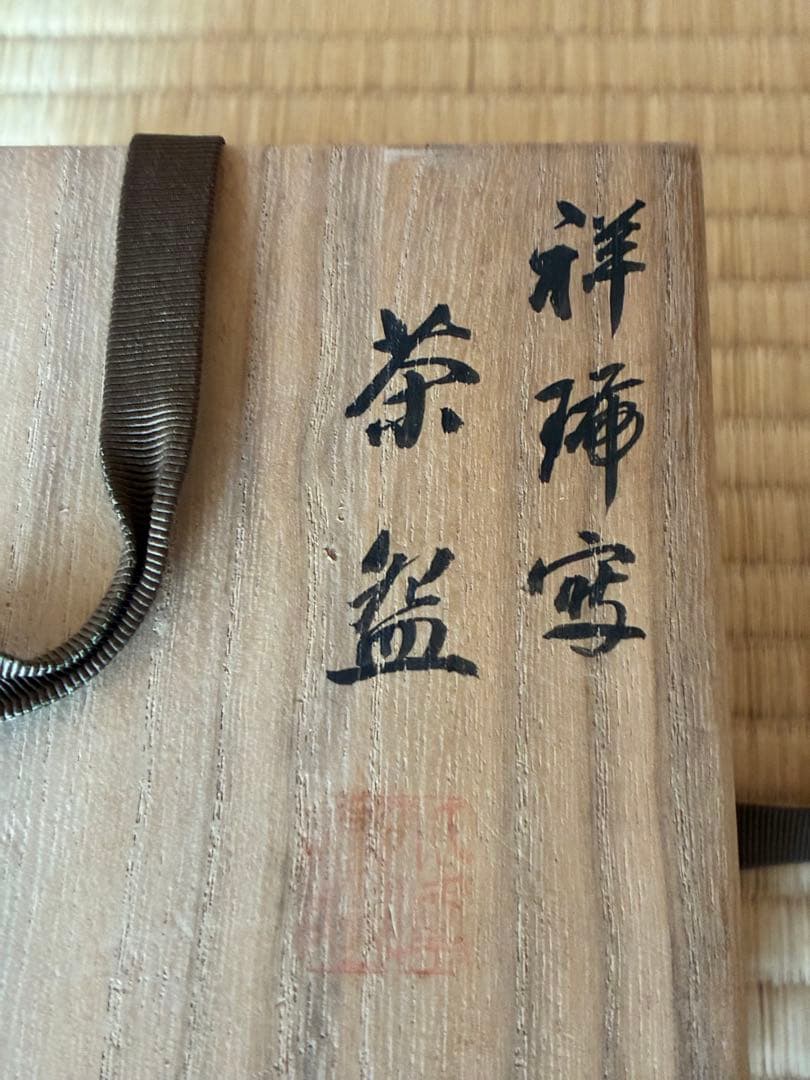 祥瑞写
茶盌